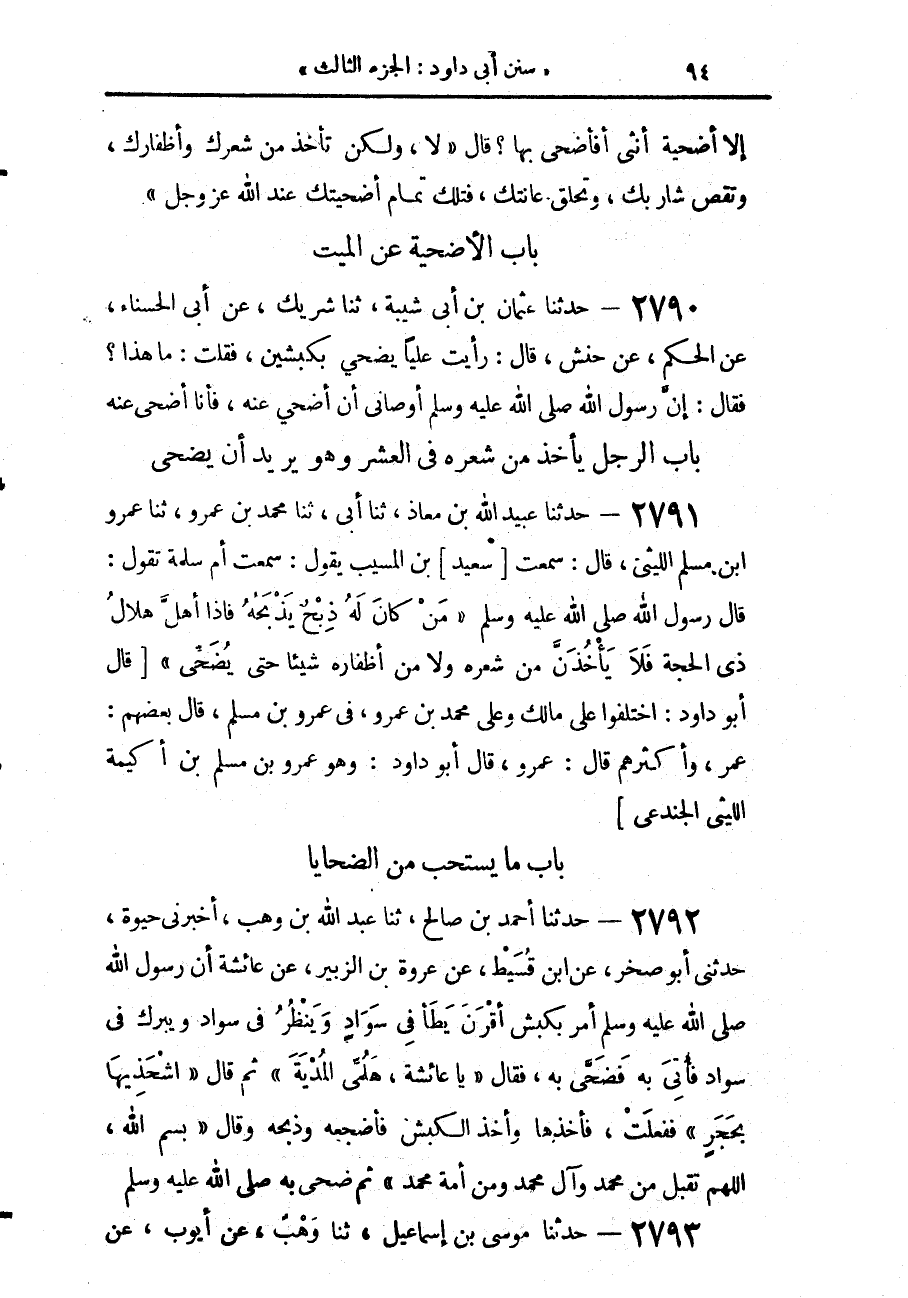 ٩٤ « سنن أبى داود : الجزء الثالث »
إلا أضحية أنثى أفأضحى بها ؟ قال « لا ، ولكن تأخذ من شعرك وأظفارك ،
وتقص شاربك ، وتحلق عانتك ، فتلك تمام أضحيتك عند الله عز وجل » .
باب الأضحية عن الميت
٢٧٩٠ — حدثنا عثمان بن أبى شيبة ، ثنا شريك ، عن أبى الحسناء ،
عن الحكم ، عن حنش ، قال : رأيت علياً يضحي بكبشين ، فقلت : ما هذا ؟
فقال : إنَّ رسول الله صلى الله عليه وسلم أوصانى أن أضحي عنه ، فأنا أضحى عنه
باب الرجل يأخذ من شعره فى العشر وهو يريد أن يضحى
٢٧٩١ — حدثنا عبيد الله بن معاذ ، ثنا أبى ، ثنا محمد بن عمرو ، ثنا عمرو
ابن مسلم الليثى ، قال : سمعت [ سعيد ] بن المسيب يقول : سمعت أم سلمة تقول :
قال رسول الله صلى الله عليه وسلم « مَنْ كانَ لَهُ ذِبْحٌ يَذْبَحُهُ فاذا أهلَّ هلالُ
ذى الحجة فَلاَ يَأْخُذَنَّ من شعره ولا من أظفاره شيئا حتى يُضَحِّى » [ قال
أبو داود : اختلفوا على مالك وعلى محمد بن عمرو ، فى عمرو بن مسلم ، قال بعضهم :
عمر ، وأكثرهم قال : عمرو ، قال أبو داود : وهو عمرو بن مسلم بن أكيمة
الليثى الجندعى ]
باب ما يستحب من الضحايا
٢٧٩٢ — حدثنا أحمد بن صالح ، ثنا عبد الله بن وهب ، أخبرنى حيوة ،
حدثنى أبو صخر ، عن ابن قُسَيْط ، عن عروة بن الزبير ، عن عائشة أن رسول الله
صلى الله عليه وسلم أمر بكبش أقْرَنَ يَطَأ فِي سَوَادٍ وَيَنْظُرُ فى سواد ويبرك فى
سواد فأُتِىَ به فَضَحَّى به ، فقال « يا عائشة ، هَلُمِّى المُدْيَةَ » ثم قال « اشْحَذِيهَا
بِحَجَرٍ » ففعلَتْ ، فأخذها وأخذ الكبش فأضجعه وذبحه وقال « بسم الله ،
اللهم تقبل من محمد وآل محمد ومن أمة محمد » ثم ضحى به صلى الله عليه وسلم
٢٧٩٣ — حدثنا موسى بن إسماعيل ، ثنا وَهْبٌ ، عن أيوب ، عن